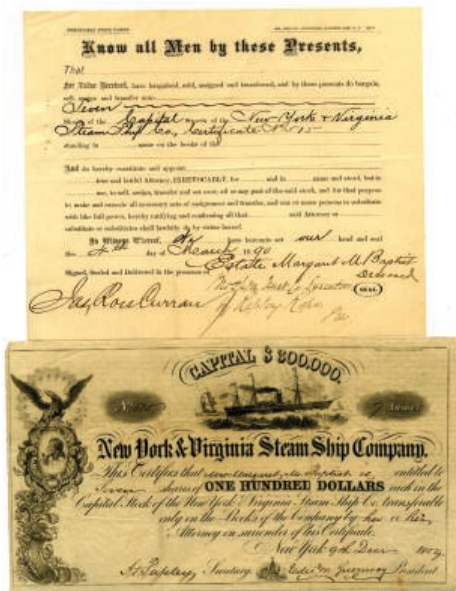 Know all Men by these Presents,
That
For Value Received, have bargained, sold, assigned and transferred, and by these presents do bargain,
sell, assign and transfer unto
Seven
Shares of the Capital of the New-York & Virginia
Steam Ship Co, Certificate No 15
standing in name on the books of the
And do hereby constitute and appoint
true and lawful Attorney, IRREVOCABLY, for and in name and stead, but to
use, to sell, assign, transfer and set over, all or any part of the said stock, and for that purpose
to make and execute all necessary acts of assignment and transfer, and one or more persons to substitute
with like full power, hereby ratifying and confirming all that said Attorney or
substitute or substitutes shall lawfully do by virtue hereof.
In Witness Whereof, We have hereunto set our hand and seal
the 4th day of March 1890
Signed, Sealed and Delivered in the presence of Estate Margaret M Baptist
Deceased
SEAL
Jas Ross Curran
CAPITAL $300,000.
New York & Virginia Steam Ship Company.
This Certifies that Margaret M. Baptist is entitled to
Seven shares of ONE HUNDRED DOLLARS each in the
Capital Stock of the New York & Virginia Steam Ship Co. transferable
only on the Books of the Company by her or her
Attorney on surrender of this Certificate.
New York 9th Decr
Secretary. President